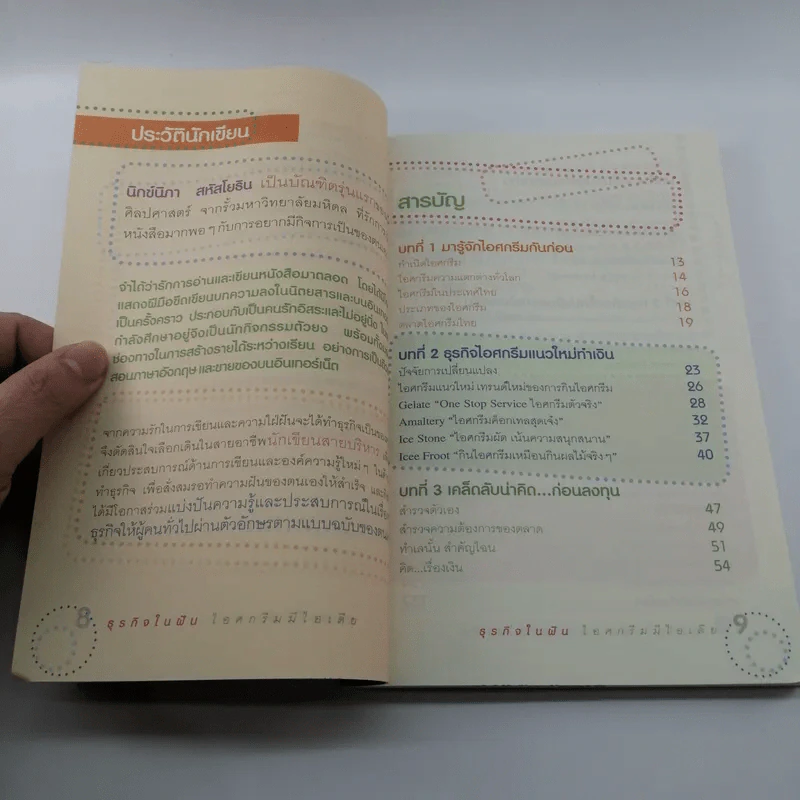 ประวัตินักเขียน
นิกช์นิภา สหัสโยธิน เป็นบัณฑิตรุ่นแรก
ศิลปศาสตร์ จากรั้วมหาวิทยาลัยมหิดล ที่รักการ
หนังสือมากพอๆ กับการอยากมีกิจการเป็นของตน
จำได้ว่ารักการอ่านและเขียนหนังสือมาตลอด โดยได้
แสดงฝีมือขีดเขียนบทความลงในนิตยสารและบนอินเท
เป็นครั้งคราว ประกอบกับเป็นคนรักอิสระและไม่อยู่นิ่ง
กำลังศึกษาอยู่จึงเป็นนักกิจกรรมตัวยง พร้อมทั้ง
ช่องทางในการสร้างรายได้ระหว่างเรียน อย่างการเป็น
สอนภาษาอังกฤษ และขายของบนอินเทอร์เน็ต
จากความรักในการเขียนและความใฝ่ฝันจะได้ทำธุรกิจเป็นของ
จึงตัดสินใจเลือกเดินในสายอาชีพนักเขียนสายบริหาร
เกี่ยวประสบการณ์ด้านการเขียนและองค์ความรู้ใหม่ๆ ใน
ทำธุรกิจ เพื่อสั่งสมรอทำความฝันของตนเองให้สำเร็จ และ
ได้มีโอกาสร่วมแบ่งปันความรู้และประสบการณ์ในเรื่อง
ธุรกิจให้ผู้คนทั่วไปผ่านตัวอักษรตามแบบฉบับของตน
8 ธุรกิจในฝัน ไอศกรีมมีไอเดีย
สารบัญ
บทที่ 1 มารู้จักไอศกรีมกันก่อน
กำเนิดไอศกรีม 13
ไอศกรีมความแตกต่างทั่วโลก 14
ไอศกรีมในประเทศไทย 16
ประเภทของไอศกรีม 18
ตลาดไอศกรีมไทย 19
บทที่ 2 ธุรกิจไอศกรีมแนวใหม่ทำเงิน
ปัจจัยการเปลี่ยนแปลง 23
ไอศกรีมแนวใหม่ เทรนด์ใหม่ของการกินไอศกรีม 26
Gelate "One Stop Service ไอศกรีมตัวจริง" 28
Amaltery "ไอศกรีมค็อกเทลสุดเจ๋ง" 32
Ice Stone "ไอศกรีมผัด เน้นความสนุกสนาน" 37
Icee Froot "กินไอศกรีมเหมือนกินผลไม้จริงๆ" 40
บทที่ 3 เคล็ดลับน่าคิด...ก่อนลงทุน
สำรวจตัวเอง 47
สำรวจความต้องการของตลาด 49
ทำเลนั้น สำคัญไฉน 51
คิด...เรื่องเงิน 54
ธุรกิจในฝัน ไอศกรีมมีไอเดีย 9